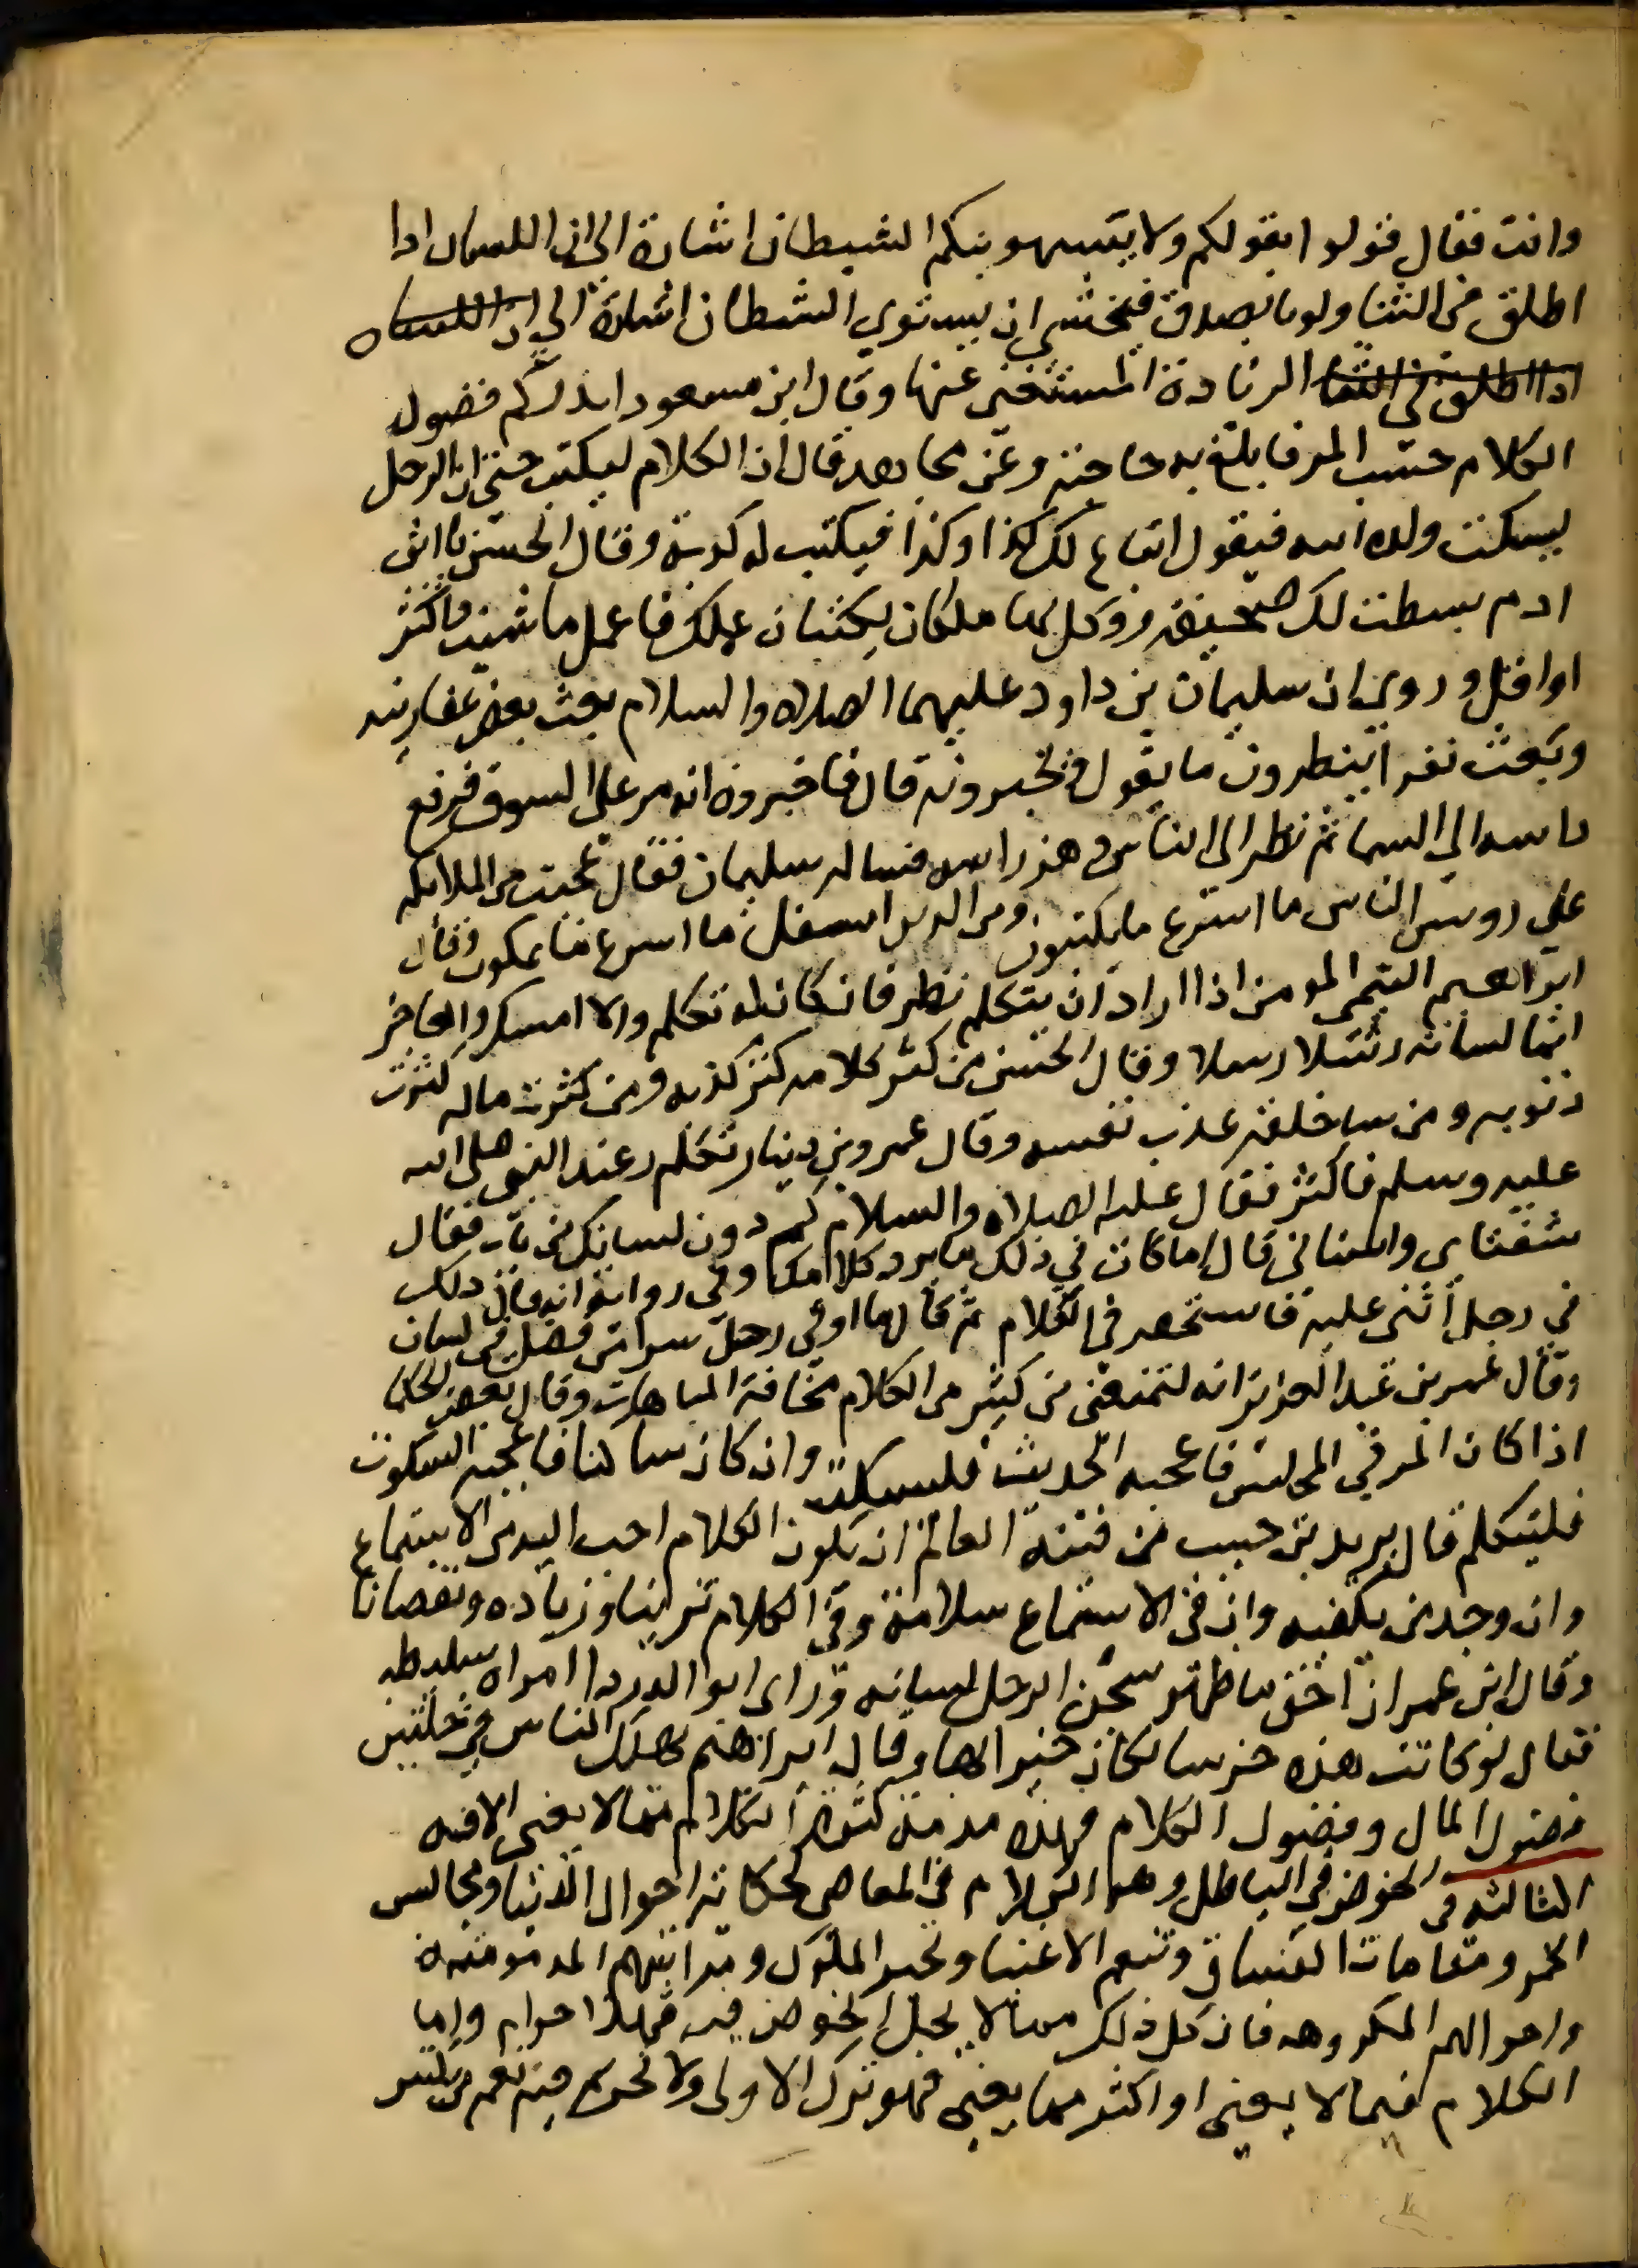 وانت فقال قولوا بقولكم ولا يستهوينكم الشيطان اشارة الى ان اللسان اذا
اطلق في الثنا ولو بالصدق فيخشى ان يستهوي الشيطان اشارة الى ان اللسان
اذا اطلق في الثنا الى الزيادة المستغنى عنها وقال ابن مسعود انذركم فضول
الكلام حسب المر ما بلغ به حاجته وعن مجاهد قال ان الكلام ليكتب حتى ان الرجل
ليسكت ولده فيقول ابتاع لك كذا وكذا فيكتب له كذبة وقال الحسن يا ابن
ادم بسطت لك صحيفة ووكل بها ملكان يكتبان عملك فاعمل ما شيت واكثر
او اقل وروي ان سليمان بن داود عليهما الصلاه والسلام بعث بعض عفاريته
وبعث نفرا ينظرون ما يقول ويخبرونه قال فاخبروه انه مر على السوق فرفع
راسه الى السما ثم نظر الى الناس وهز راسه فساله سليمان فقال عجبت من الملايكه
على روس الناس ما اسرع ما يكتبون ومن الذين اسفل ما اسرع ما يملون وقال
ابراهيم التيمي المومن اذا اراد ان يتكلم نظر فان كان له تكلم والا امسك والفاجر
انما لسانه رسلا رسلا وقال الحسن من كثر كلامه كثر كذبه ومن كثرت ماله كثرت
ذنوبه ومن سا خلقه عذب نفسه وقال عمرو بن دينار تكلم رجل عند النبي صلى الله
عليه وسلم فاكثر فقال عليه الصلاه والسلام كم دون لسانك من باب فقال
شفتاي واسناني قال اما كان في ذلك ما يرد كلامك وفي رواية انه قال ذلك
في رجل اثنى عليه فاستحصر في الكلام ثم قال ما اوتي رجل شرا من فضل في لسان
وقال عمر بن عبد العزيز انه لتمنعني من كثير من الكلام مخافة المباهات وقال بعض الحكما
اذا كان المر في المجلس فاعجبه الحديث فليسكت وان كان ساكتا فاعجبه السكوت
فليتكلم قال يزيد بن حبيب من فتنة العالم ان يكون الكلام احب اليه من الاستماع
وان وجد من يكفيه وان في الاستماع سلامة وفي الكلام تزيينا وزياده ونقصانا
وقال ابن عمر ان احق ما طهر الرجل لسانه وراى ابو الدردا امراه سليطه
فقال لو كانت هذه خرسا لكان خيرا لها وقال ابراهيم يهلك الناس في خلتين
فضول المال وفضول الكلام فهذه مذمة كثرة الكلام مما لا يعني الافه
الثالثه في الخوض في الباطل وهو الكلام في المعاصي كحكاية احوال النسا ومجالس
الخمر ومقامات الفساق وتنعم الاغنيا وتجبر الملوك ومراتبهم المذمومة
واحوالهم المكروهه فان كل ذلك مما لا يحل الخوض فيه فهذا حرام واما
الكلام فيما لا يعني او اكثر مما يعني فهو ترك الاولى ولا تحريم فيه نعم من يكثر